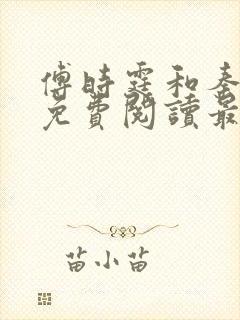 傅時霆和秦
免費閱讀最
苗小苗